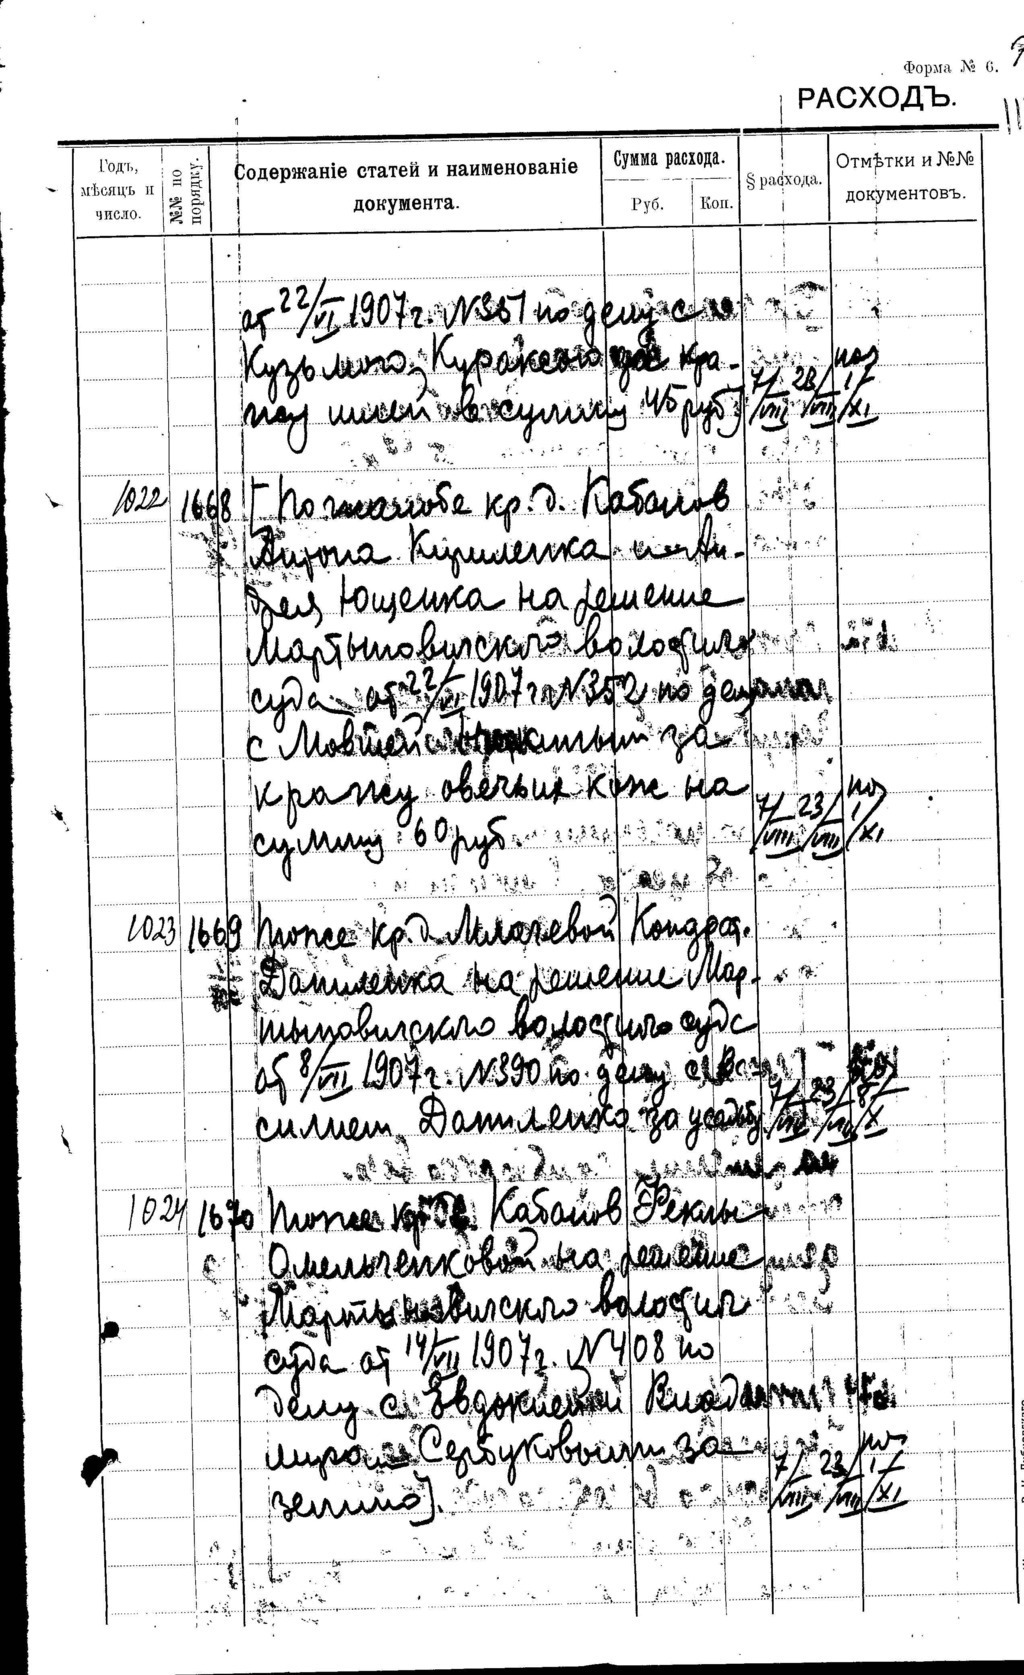 Форма № 6.
РАСХОДЪ.
Годъ, мѣсяцъ и число.
№№ по порядку.
Содержаніе статей и наименованіе документа.
Сумма расхода.
Руб. Коп.
§ расхода.
Отмѣтки и №№ документовъ.
от 22/VI 1907 г. N 351 по делу с
Кузьмою Кура за кра-
жу в сумму 45 руб.]
7/VIII 23/VIII 1/XI
1022 1668 [По жалобе кр. д. Кабанов
Антона Кириленка и Ан-
дрея Ющенка на решение
Мартыновичского волостного
суда от 22/VI 1907 г. N 352 по делу
с Мовшей за
кражу овечьих кож на
сумму 60 руб.
7/VIII 23/VIII 1/XI
1023 1669 Тоже кр. д. Млачевой Кондрат.
Даниленка на решение Мар-
тыновичского волостного суда
от 8/VII 1907 г. N 390 по делу с Ва-
силием Даниленко за усадьбу
7/VIII 23/VIII 8/X
1024 1670 Тоже кр. д. Кабанов Феклы
Омельченковой на решение
Мартыновичского волостн.
суда от 14/VII 1907 г. N 408 по
делу с Евдокией и Влади-
миром Сербуковыми за
землю].
7/VIII 23/VIII 1/XI